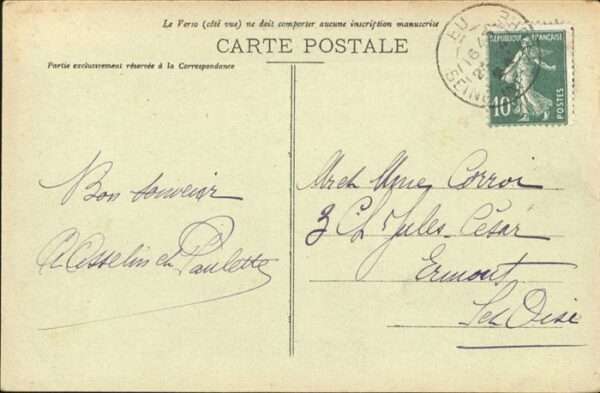 Le Verso (côté vue) ne doit comporter aucune inscription manuscrite
CARTE POSTALE
Partie exclusivement réservée à la Correspondance
EU
SEINE
RÉPUBLIQUE FRANÇAISE
10
POSTES
Bon souvenir
A Asselin et Paulette
M et Mme Corroi
3 Ch Jules-César
Ermont
S et Oise